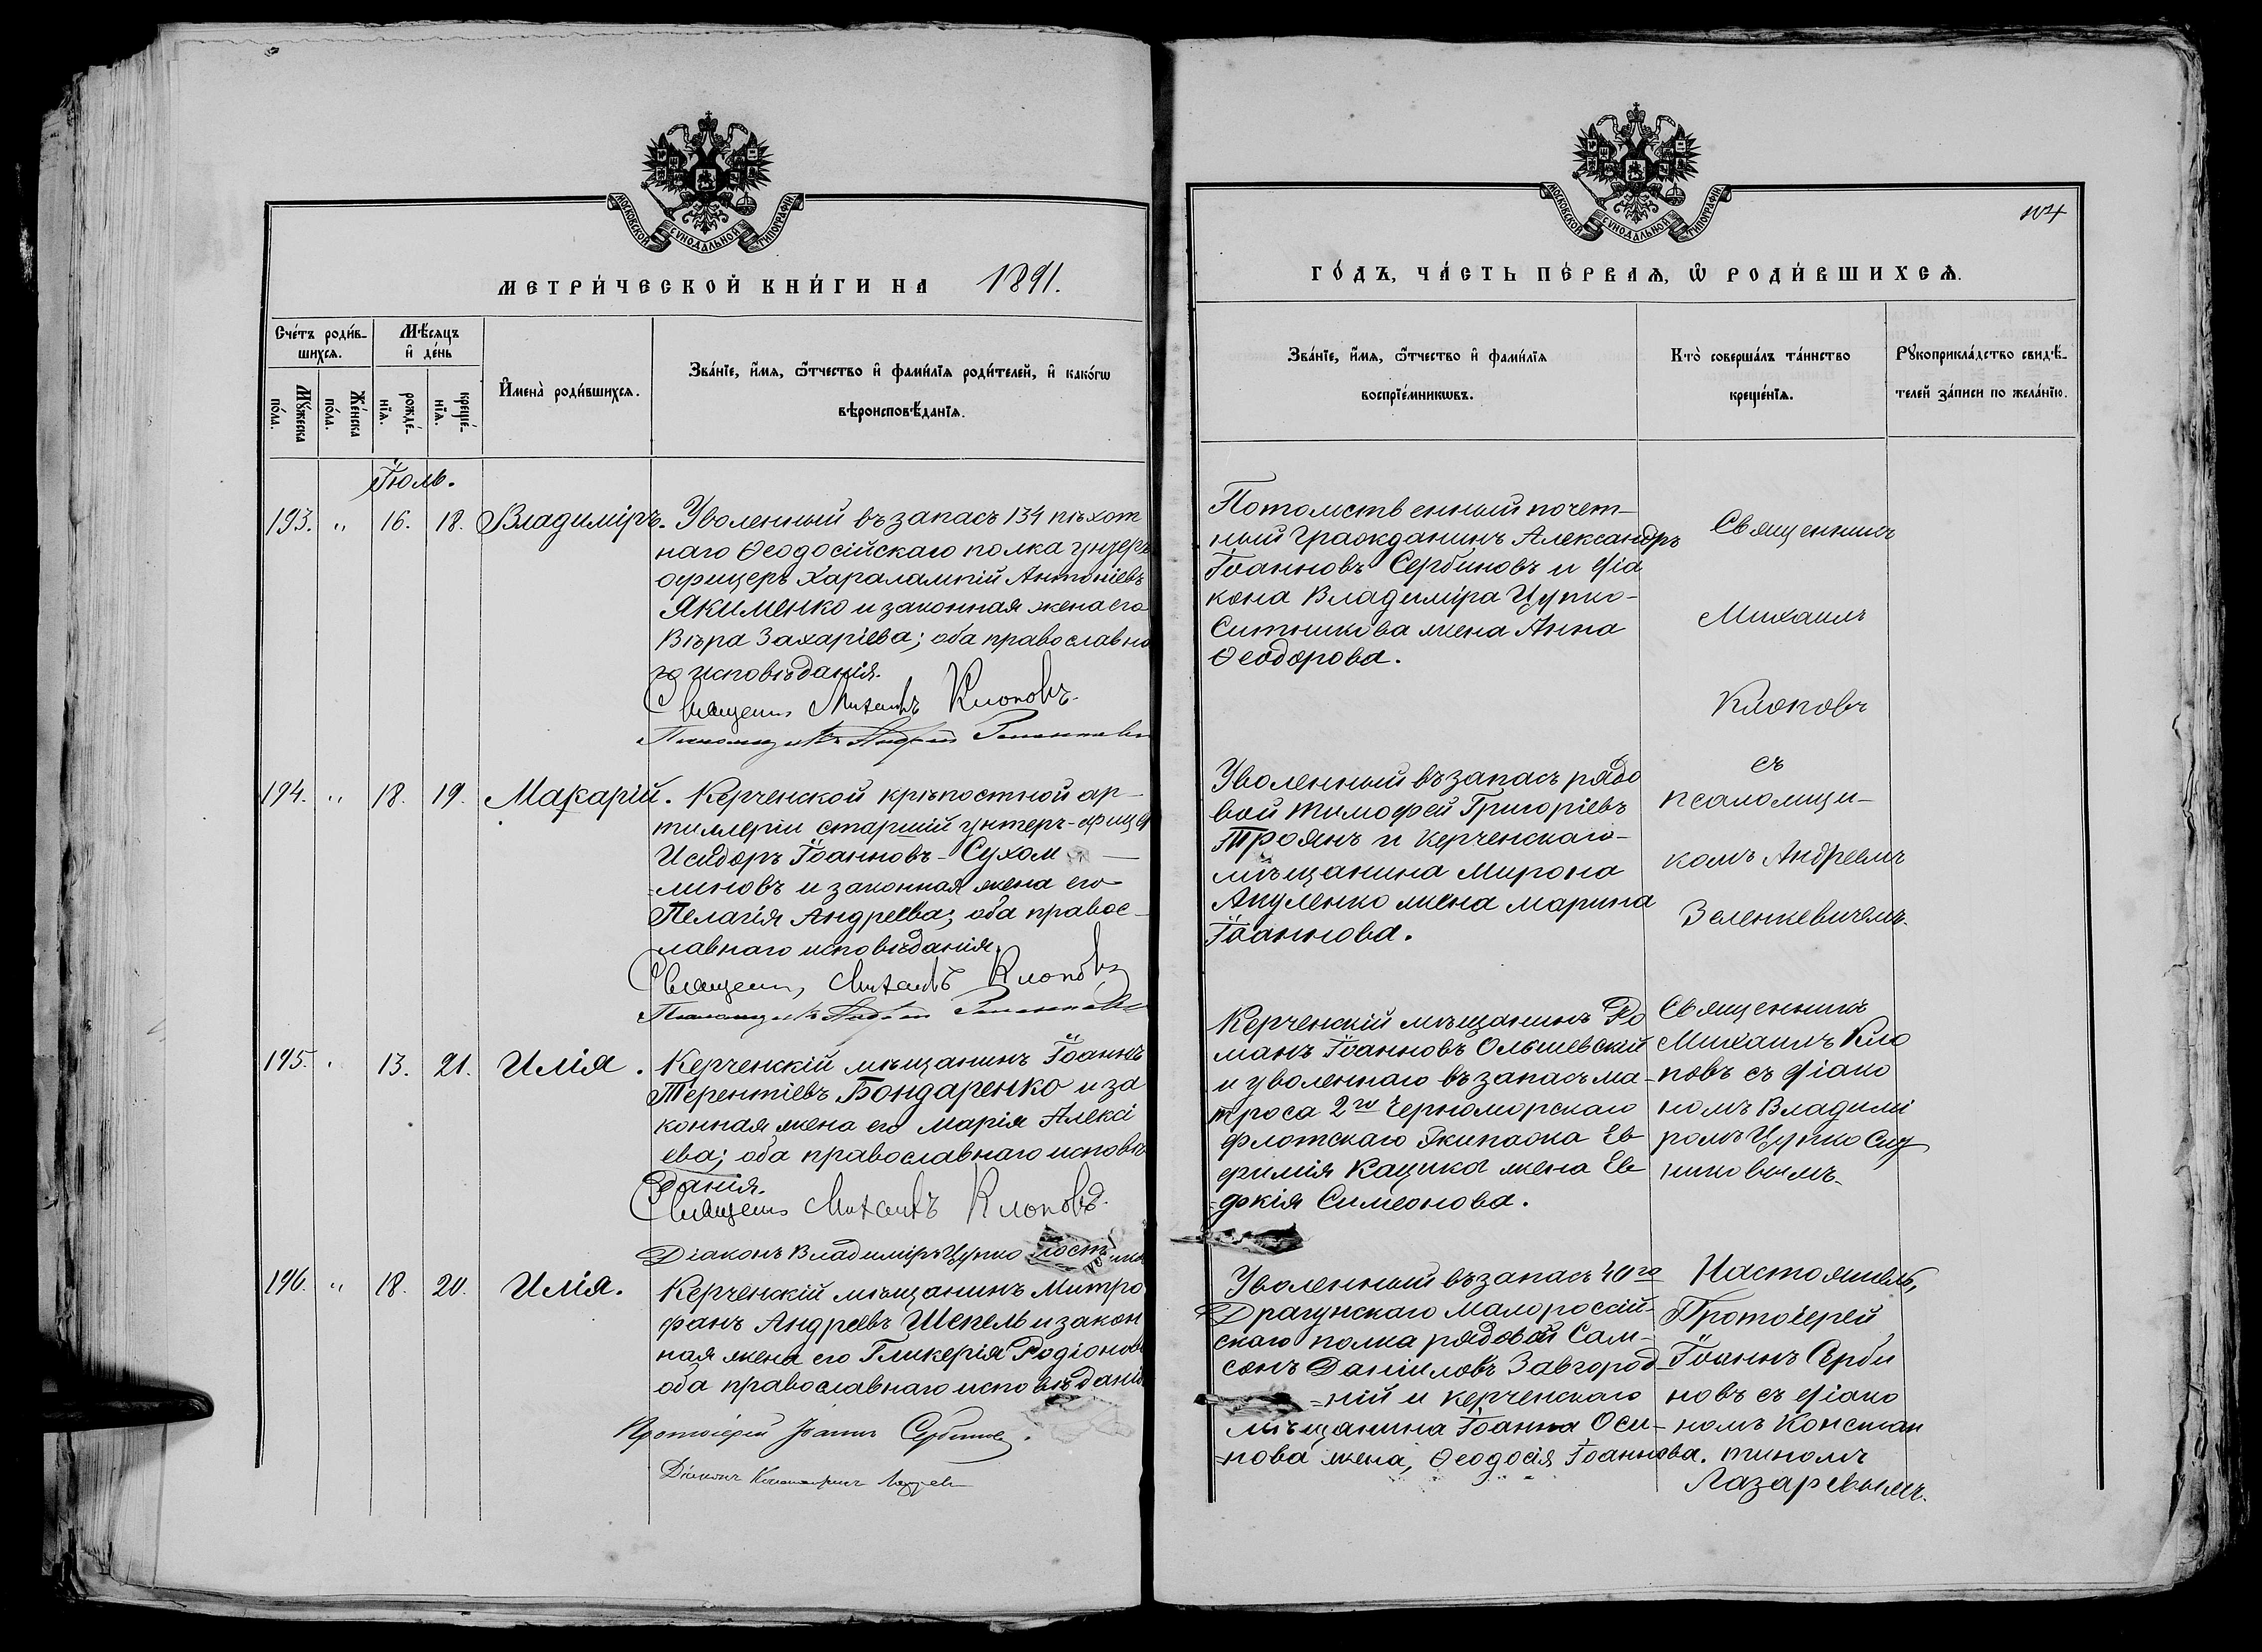 МОСКОВСКОЙ СѴНОДАЛЬНОЙ ТИПОГРАФІИ
МЕТРИ́ЧЕСКОЙ КНИ́ГИ НА 1891.
Сче́тъ роди́в-
шихсѧ.
Мѣ́сѧцъ
и҆ де́нь
Мꙋ́жеска
по́ла.
Же́нска
по́ла.
рожде́-
нїѧ.
креще́-
нїѧ.
И҆мена̀ роди́вшихсѧ.
Зва́нїе, и҆́мѧ, ѻ҆́тчество и҆ фами́лїѧ роди́телей, и҆ како́гѡ
вѣроисповѣ́данїѧ.
Іюль.
193. „ 16. 18. Владиміръ. Уволенный въ запасъ 134 пѣхот
наго Ѳеодосійскаго полка унтеръ
офицеръ Харалампій Антоніевъ
Якименко и законная жена его
Вѣра Захаріева; оба православна
го исповѣданія.
Священ. Михаилъ Клоповъ.
Псаломщикъ Андрей
194. „ 18. 19. Макарій. Керченской крѣпостной ар-
тиллеріи старшій унтеръ-офицер
Исидоръ Іоанновъ Сухом
-линовъ и законная жена его
Пелагія Андреева; оба правос-
лавнаго исповѣданія.
Священ. Михаилъ Клоповъ
Псаломщикъ Андрей
195. „ 13. 21. Илія. Керченскій мѣщанинъ Іоаннъ
Терентіевъ Бондаренко и за
конная жена его Марія Алексі
ева; оба православнаго исповѣ
данія.
Священ. Михаилъ Клоповъ.
Діаконъ Владиміръ Цупко
196. „ 18. 20. Илія. Керченскій мѣщанинъ Митро
фанъ Андреевъ Шепель и закон
ная жена его Гликерія Родіонова
оба православнаго исповѣданія
Протоіерей Іоаннъ Сербиновъ.
Діаконъ Константинъ Лазарев
МОСКОВСКОЙ СѴНОДАЛЬНОЙ ТИПОГРАФІИ
104
ГО́ДЪ, ЧА́СТЬ ПЕ́РВАѦ, Ѡ҆ РОДИ́ВШИХСѦ.
Зва́нїе, и҆́мѧ, ѻ҆́тчество и҆ фами́лїѧ
воспрїе́мникѡвъ.
Кто̀ соверша́лъ та́инство
креще́нїѧ.
Рꙋкоприкла́дство свидѣ́-
телей за́писи по жела́нїю.
Потомственный почет-
ный гражданинъ Александръ
Іоанновъ Сербиновъ и діа
кона Владиміра Цупко-
Ситникова жена Анна
Ѳеодорова.
Священникъ
Михаилъ
Клоповъ
съ
псаломщи-
комъ Андреемъ
Зеленкевичемъ.
Уволенный въ запасъ рядо
вой Тимофей Григоріевъ
Троянъ и керченскаго-
мѣщанина Мирона
Акуленко жена Марина
Іоаннова.
Керченскій мѣщанинъ Ро
манъ Іоанновъ Ольшевскій
и уволеннаго въ запасъ ма-
троса 2го Черноморскаго
флотскаго Экипажа Ев
фимія Кацика жена Ев
-докія Симеонова.
Священникъ
Михаилъ Кло
повъ съ діако
номъ Владимі
ромъ Цупко Сит
никовымъ.
Уволенный въ запасъ 40го
Драгунскаго Малороссій-
скаго полка рядовой Сам-
сонъ Даніиловъ Завгород
-ній и керченскаго
мѣщанина Іоанна Оси-
-пова жена, Ѳеодосія Іоаннова.
Настоятель,
Протоіерей
Іоаннъ Серби
новъ съ діако
номъ Констан
тиномъ
Лазаревымъ.